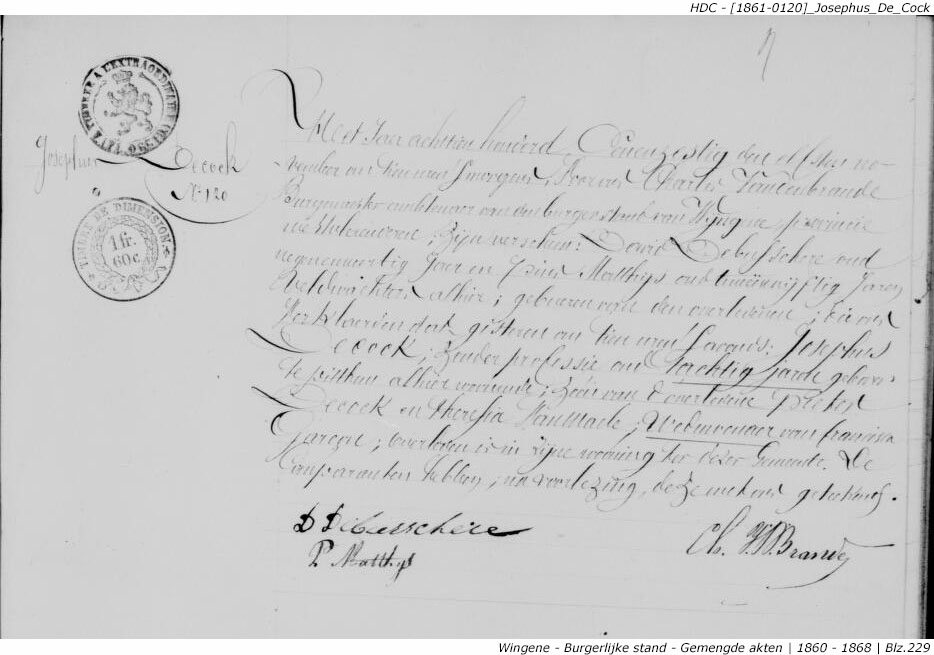 HDC - [1861-0120]_Josephus_De_Cock
TIMBRE A L'EXTRAORDINAIRE
Josephus Decock
N° 120
TIMBRE DE DIMENSION
1 fr.
60 c.
Het Jaer achttien honderd Eenenzestig den elfsten no-
vember om tien uren 's morgens, Voor ons Charles Vandenbrande
Burgemeester ambtenaer van den burgerstand van Wyngene, provincie
westvlaenderen, zijn verschenen David Debusschere oud
negenenveertig Jaer en Pius Matthijs oud Jaren
Veldwachters alhier; gebueren van den overledenen; die ons
Verklaerden dat gisteren om tien uren 's avonds, Josephus
Decock; zonder professie oud tachtig jaren geboren
te pitthem alhier woonende; zoon van d'overledene pieter
Decock en theresia Vanmaele; Weduwenaer van francisca
; Overleden is in zijne wooning ter dezer Gemeente. De
Comparanten hebben, na voorlezing, deze met ons geteekend.
D Debusschere
P Matthijs
Ch. VDBrande
Wingene - Burgerlijke stand - Gemengde akten | 1860 - 1868 | Blz.229